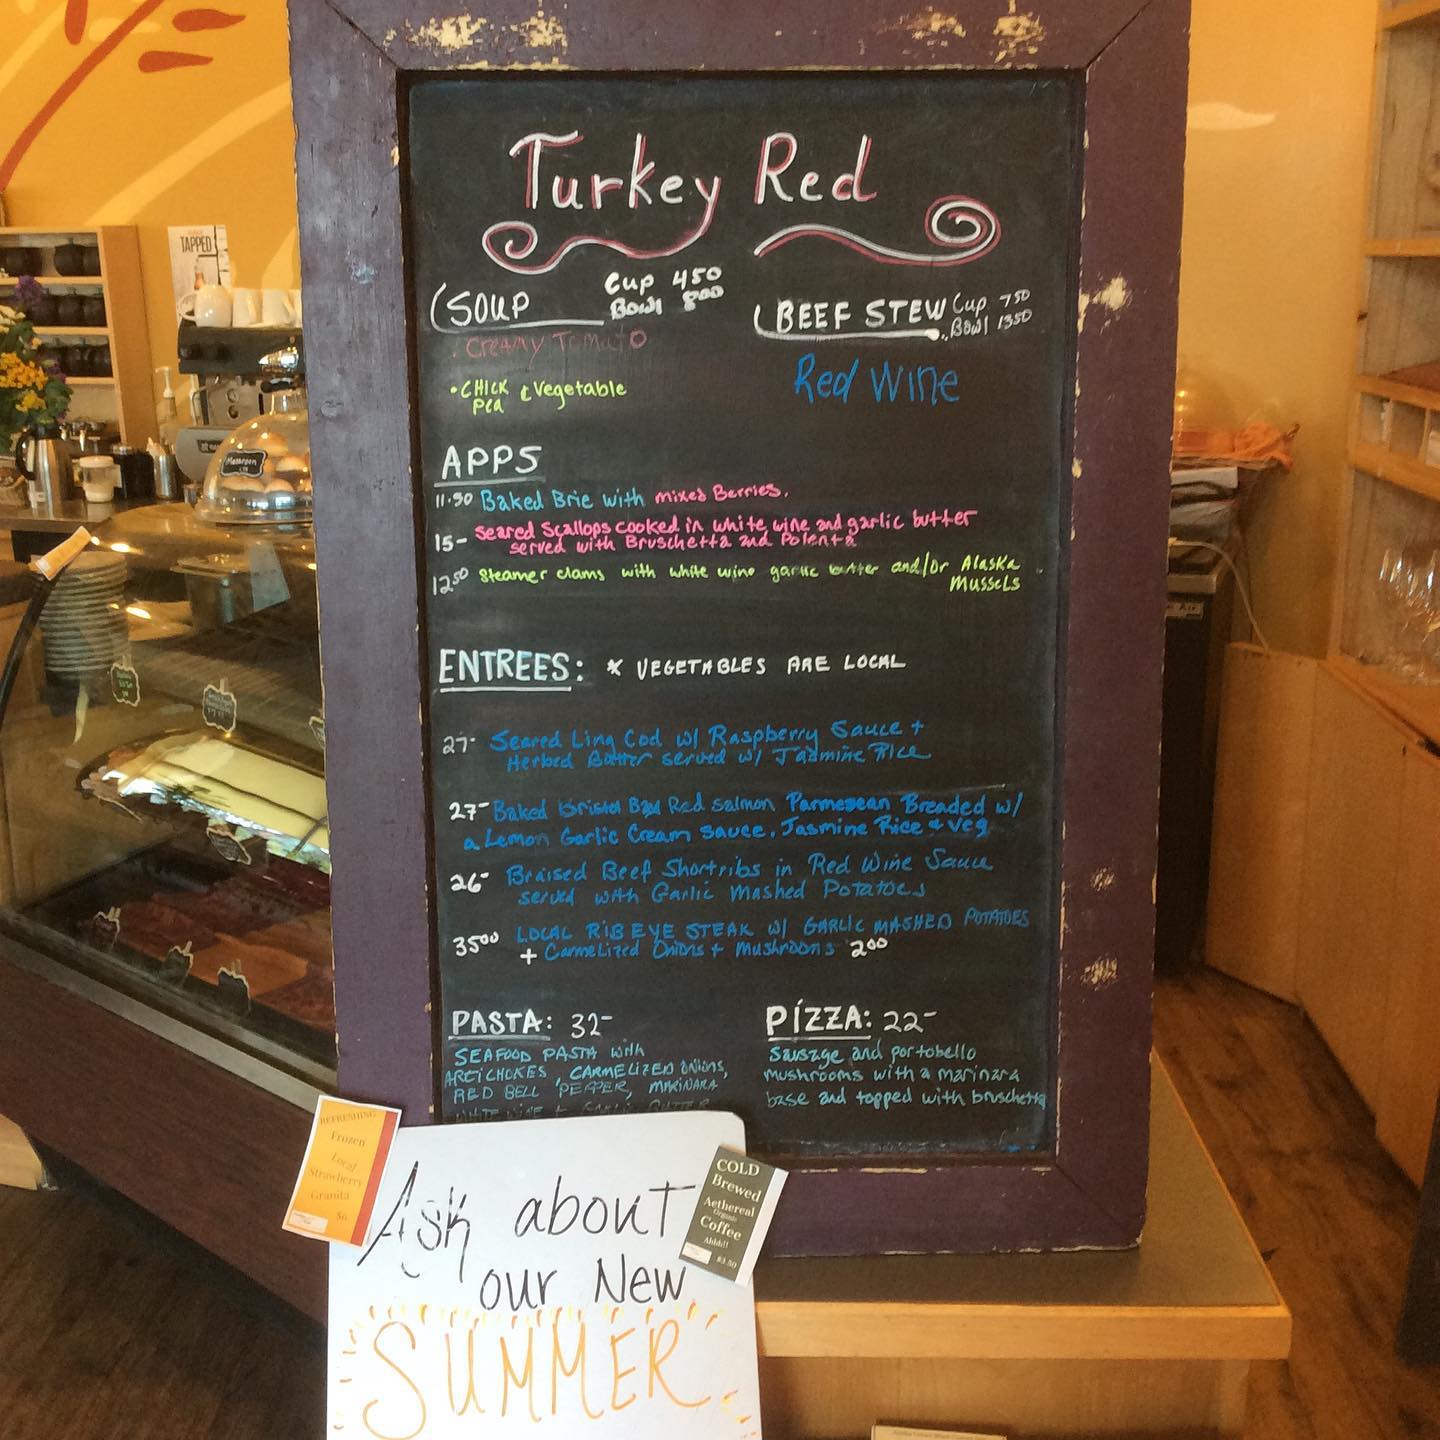 Turkey Red
SOUP
Cup 4 50
Bowl 8 00
. Creamy Tomato
• CHICK & Vegetable
Pea
BEEF STEW
Cup 7 50
Bowl 13 50
Red Wine
APPS
11.50 Baked Brie with mixed Berries.
15- Seared Scallops cooked in white wine and garlic butter
served with Bruschetta and Polenta
12 50 Steamer clams with white wine garlic butter and/or Alaska
Mussels
ENTREES: * VEGETABLES ARE LOCAL
27- Seared Ling Cod w/ Raspberry Sauce +
Herbed Butter served w/ Jasmine Rice
27- Baked Bristol Bay Red salmon Parmesean Breaded w/
a Lemon Garlic Cream sauce. Jasmine Rice + veg
26- Braised Beef Shortribs in Red Wine Sauce
served with Garlic Mashed Potatoes
35 00 LOCAL RIB EYE STEAK w/ GARLIC MASHED POTATOES
+ Carmelized Onions + Mushrooms 2 00
PASTA: 32-
SEAFOOD PASTA with
ARTICHOKES, CARMELIZED ONIONS,
RED BELL PEPPER, MARINARA
WHITE WINE + GARLIC BUTTER
PIZZA: 22-
Sausage and portobello
mushrooms with a marinara
base and topped with bruschetta
Ask about
our New
SUMMER
REFRESHING
Frozen
Local
Strawberry
Granita
$6
COLD
Brewed
Aethereal
Organic
Coffee
Ahhh!!
$3.50
TAPPED
Macaroon